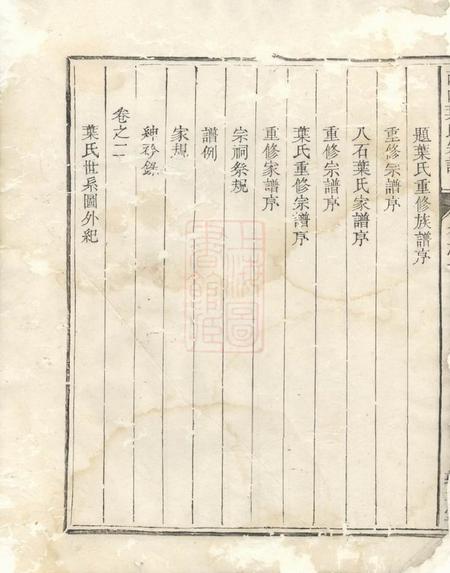 題葉氏重修族譜序
重修宗譜序
八石葉氏家譜序
重修宗譜序
葉氏重修宗譜序
重修家譜序
宗祠祭規
譜例
家規
紳衿錄
卷之二
葉氏世系圖外紀
上海圖書館藏